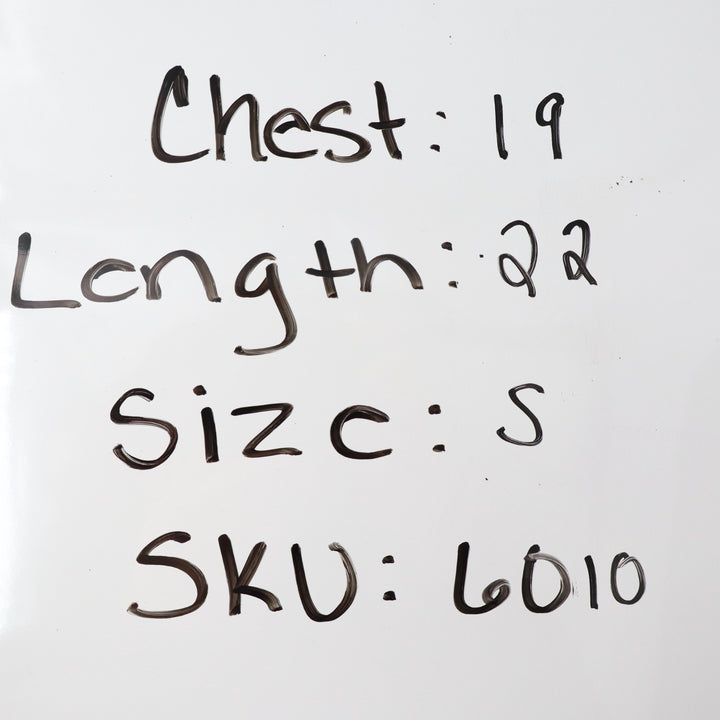 Chest: 19
Length: 22
Size: S
SKU: 6010